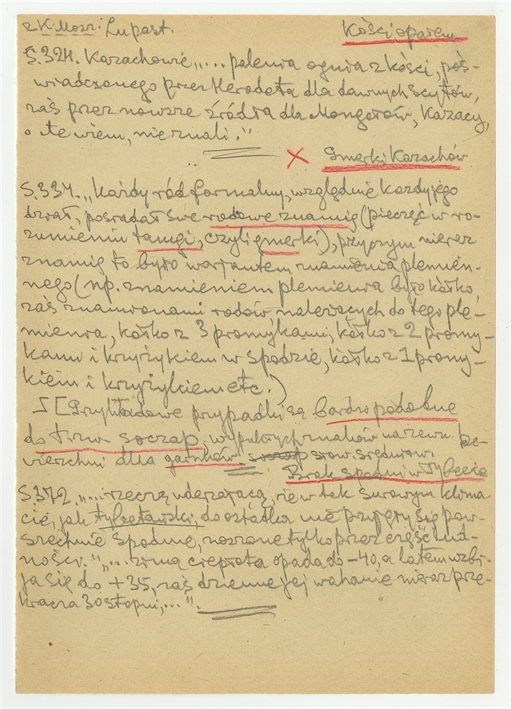 z K. Mosz. Lu past. Kości opałem
S. 324. Kazachowie „... palenia ognia z kości, poś-
wiadczonego przez Herodota dla dawnych Scytów,
zaś przez nowsze źródła dla Mongołów, Kazacy,
o ile wiem, nie znali."
× Gmerki Kazachów
S. 337. „Każdy ród formalny, względnie każdy jego
dział, posiadał swe rodowe znamię (pieczęć w ro-
zumieniu tamgi, czyli gmerki), przyczym nieraz
znamię to było wariantem znamienia plemien-
nego (np. znamieniem plemienia było kółko
zaś znamionami rodów należących do tego ple-
mienia, kółko z 3 promykami, kółko z 2 promy-
kami i krzyżykiem w spodzie, kółko z 1 promy-
kiem i krzyżykiem etc.)
[Przykładowe przypadki są bardzo podobne
do tzw. soczap, wypukłych znaków na zewn. po-
wierzchni dla garnków słow. średniow.
Brak spodni w Tybecie
S. 372 „... rzeczą uderzającą, że w tak surowym klima
cie, jak tybetański, do ostatka nie przyjęły się pow-
szechnie spodnie, noszone tylko przez część lud-
ności. „... zimą ciepłota opada do -40, a latem wzbi-
ja się do +35, zaś dziennej jej wahanie nieraz prze-
kracza 30 stopni,..."